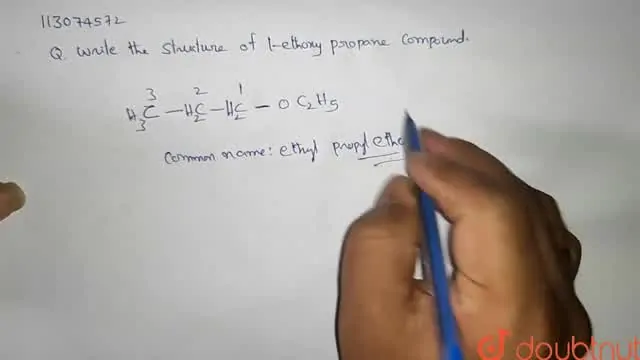 113074572
Q. Write the structure of 1-ethoxy propane compound.
3 2 1
H3C – H2C – H2C – O C2H5
Common name: ethyl propyl
doubtnut